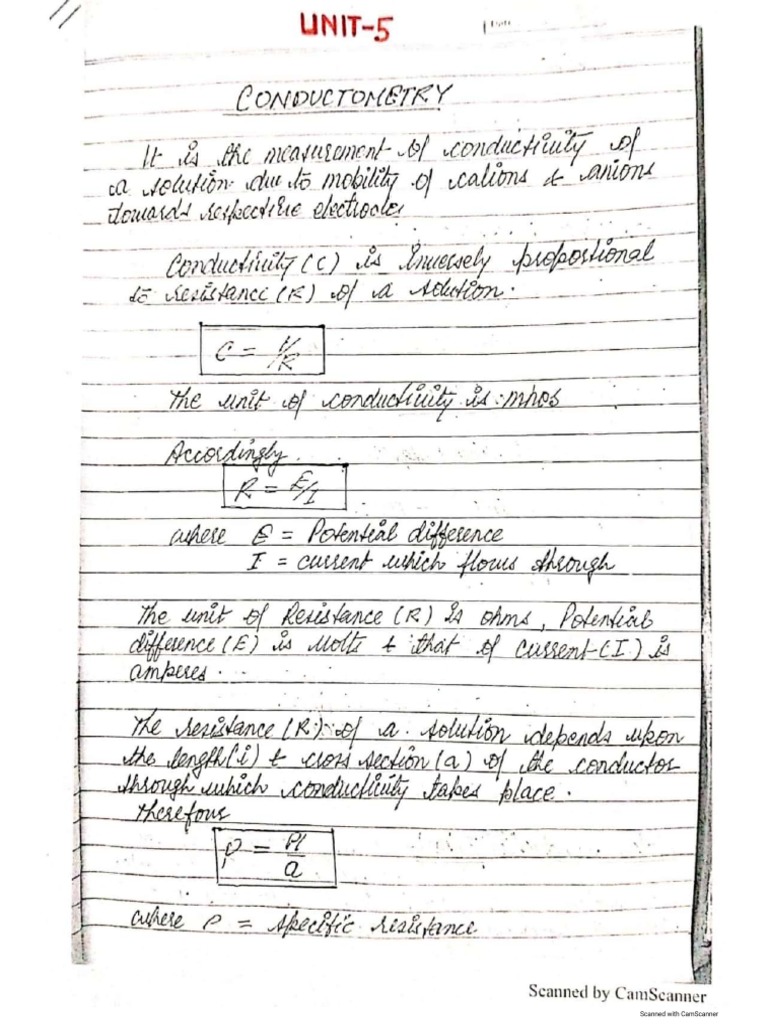 UNIT-5
Date
CONDUCTOMETRY
It is the measurement of conductivity of
a solution due to mobility of cations & anions
towards respective electrodes
Conductivity (C) is Inversely proportional
to resistance (R) of a solution.
C = 1/R
The unit of conductivity is mhos
Accordingly.
R = E/I
where E = Potential difference
I = current which flows through
The unit of Resistance (R) is ohms, Potential
difference (E) is Volts & that of current (I) is
amperes.
The resistance (R) of a solution depends upon
the length (l) & cross section (a) of the conductor
through which conductivity takes place.
Therefore
ρ = ρl
a
where ρ = specific resistance
Scanned by CamScanner
Scanned with CamScanner